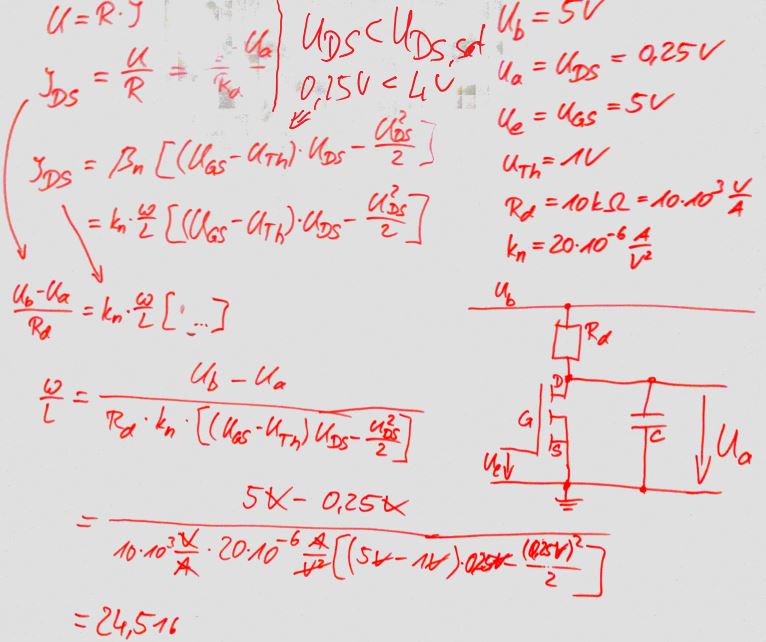 U = R · J
J_DS = U/R = U_a/R_d
U_DS < U_DS,sat
0,25V < 4V
U_b = 5V
U_a = U_DS = 0,25V
U_e = U_GS = 5V
U_Th = 1V
R_d = 10kΩ = 10·10³ V/A
k_n = 20·10⁻⁶ A/V²
J_DS = β_n [(U_GS - U_Th) · U_DS - U_DS²/2]
= k_n · ω/L [(U_GS - U_Th) · U_DS - U_DS²/2]
(U_b - U_a)/R_d = k_n · ω/L [...]
ω/L = (U_b - U_a)/(R_d · k_n · [(U_GS - U_Th) U_DS - U_DS²/2])
= (5V - 0,25V)/(10·10³ V/A · 20·10⁻⁶ A/V² [(5V - 1V) · 0,25V - (0,25V)²/2])
= 24,516
U_b
R_d
D
G
S
C
U_e
U_a